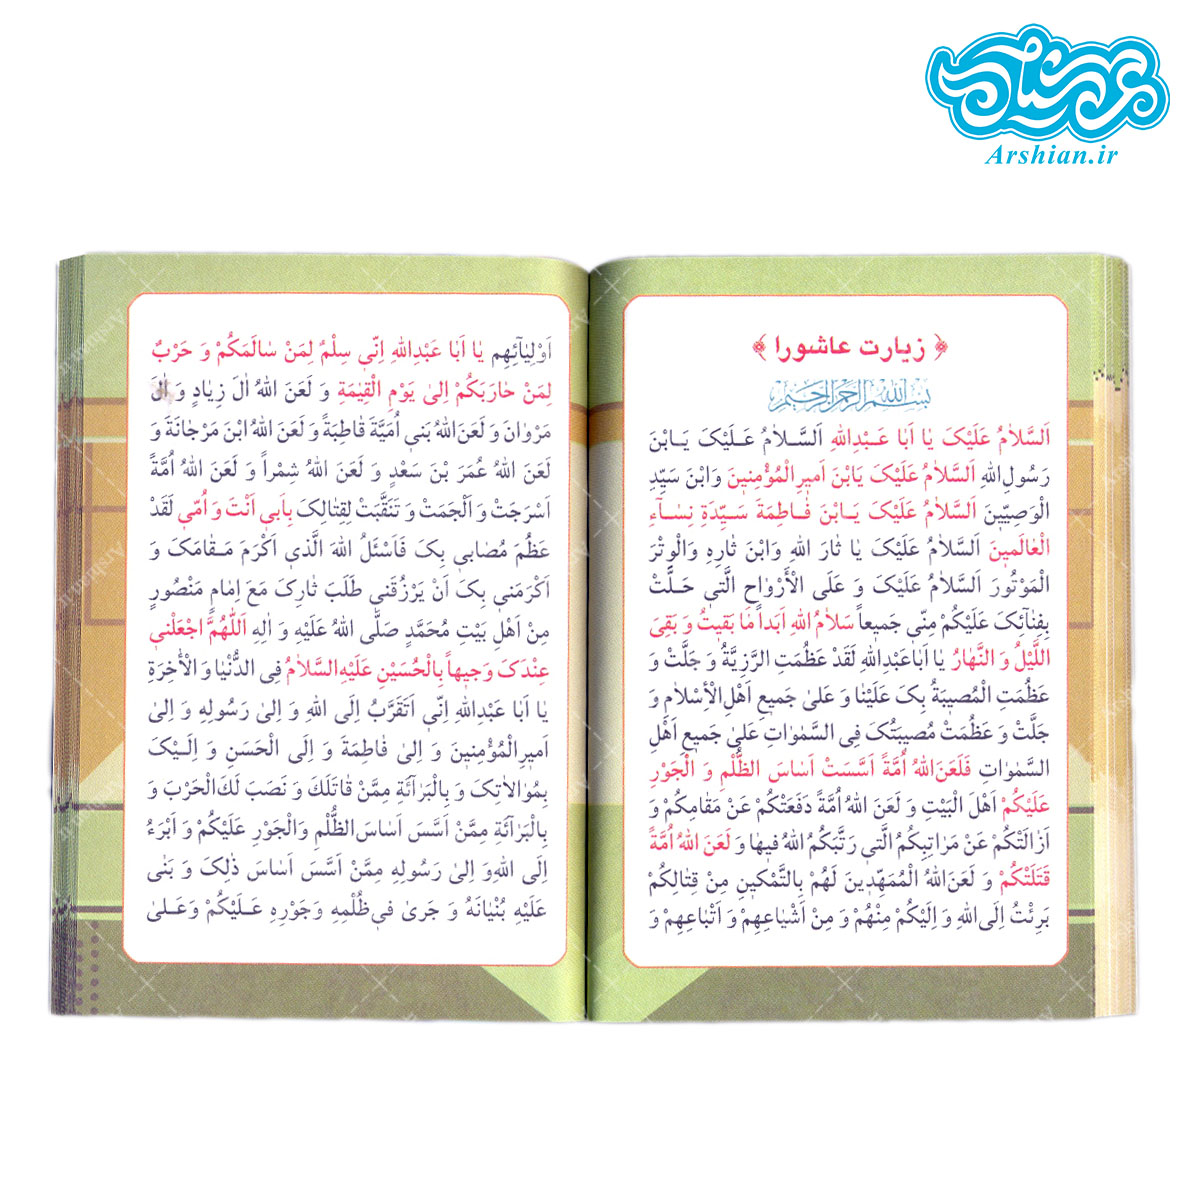 عرشیان
Arshian.ir
زیارت عاشورا
بِسْمِ اللهِ الرَّحْمٰنِ الرَّحیمِ
اَلسَّلاٰمُ عَلَیْکَ یٰا اَبٰا عَـبْدِاللهِ اَلسَّـلاٰمُ عَـلَیْکَ یَـابْنَ
رَسُولِ اللهِ اَلسَّلاٰمُ عَلَیْکَ یَابْنَ اَمیرِ الْمُؤْمِنینَ وَابْنَ سَیِّدِ
الْوَصِیّینَ اَلسَّلاٰمُ عَلَیْکَ یَـابْنَ فٰـاطِمَةَ سَـیِّدَةِ نِسٰـآءِ
الْعٰالَمینَ اَلسَّلاٰمُ عَلَیْکَ یٰا ثٰارَ اللهِ وَابْنَ ثٰارِهِ وَالْوِتْرَ
الْمَوْتُورَ اَلسَّلاٰمُ عَلَیْکَ وَ عَلَی الْأَرْوٰاحِ الَّتی حَـلَّتْ
بِفِنٰآئِکَ عَلَیْکُمْ مِنّی جَمیعاً سَلاٰمُ اللهِ اَبَداً مٰا بَقیتُ وَ بَقِیَ
اللَّیْلُ وَ النَّهٰارُ یٰا اَبٰاعَبْدِاللهِ لَقَدْ عَظُمَتِ الرَّزِیَّةُ وَ جَلَّتْ وَ
عَظُمَتِ الْمُصیبَةُ بِکَ عَلَیْنٰا وَ عَلیٰ جَمیعِ اَهْلِ الْأِسْلاٰمِ وَ
جَلَّتْ وَ عَظُمَتْ مُصیبَتُکَ فِی السَّمٰوٰاتِ عَلیٰ جَمیعِ اَهْلِ
السَّمٰوٰاتِ فَلَعَنَ اللهُ اُمَّةً اَسَّسَتْ اَسٰاسَ الظُّلْمِ وَ الْجَوْرِ
عَلَیْکُمْ اَهْلَ الْبَیْتِ وَ لَعَنَ اللهُ اُمَّةً دَفَعَتْکُمْ عَنْ مَقٰامِکُمْ وَ
اَزٰالَتْکُمْ عَنْ مَرٰاتِبِکُمُ الَّتی رَتَّبَکُمُ اللهُ فیهٰا وَ لَعَنَ اللهُ اُمَّةً
قَتَلَتْکُمْ وَ لَعَنَ اللهُ الْمُمَهِّدینَ لَهُمْ بِالتَّمْکینِ مِنْ قِتٰالِکُمْ
بَرِئْتُ اِلَی اللهِ وَ اِلَیْکُمْ مِنْهُمْ وَ مِنْ اَشْیٰاعِهِمْ وَ اَتْبٰاعِهِمْ وَ
اَوْلِیٰآئِهِم یٰا اَبٰا عَبْدِاللهِ اِنّی سِلْمٌ لِمَنْ سٰالَمَکُمْ وَ حَرْبٌ
لِمَنْ حٰارَبَکُمْ اِلیٰ یَوْمِ الْقِیٰمَةِ وَ لَعَنَ اللهُ اٰلَ زِیٰادٍ وَ اٰلَ
مَرْوٰانَ وَ لَعَنَ اللهُ بَنی اُمَیَّةَ قٰاطِبَةً وَ لَعَنَ اللهُ ابْنَ مَرْجٰانَةَ وَ
لَعَنَ اللهُ عُمَرَ بْنَ سَعْدٍ وَ لَعَنَ اللهُ شِمْراً وَ لَعَنَ اللهُ اُمَّةً
اَسْرَجَتْ وَ اَلْجَمَتْ وَ تَنَقَّبَتْ لِقِتٰالِکَ بِاَبی اَنْتَ وَ اُمّی لَقَدْ
عَظُمَ مُصٰابی بِکَ فَاَسْئَلُ اللهَ الَّذی اَکْرَمَ مَـقٰامَکَ وَ
اَکْرَمَنی بِکَ اَنْ یَرْزُقَنی طَلَبَ ثٰارِکَ مَعَ اِمٰامٍ مَنْصُورٍ
مِنْ اَهْلِ بَیْتِ مُحَمَّدٍ صَلَّی اللهُ عَلَیْهِ وَ اٰلِهِ اَللّٰهُمَّ اجْعَلْنی
عِنْدَکَ وَجیهاً بِالْحُسَیْنِ عَلَیْهِ السَّلاٰمُ فِی الدُّنْیٰا وَ الْأٰخِرَةِ
یٰا اَبٰا عَبْدِاللهِ اِنّی اَتَقَرَّبُ اِلَی اللهِ وَ اِلیٰ رَسُولِهِ وَ اِلیٰ
اَمیرِ الْمُؤْمِنینَ وَ اِلیٰ فٰاطِمَةَ وَ اِلَی الْحَسَنِ وَ اِلَـیْکَ
بِمُوٰالاٰتِکَ وَ بِالْبَرٰائَةِ مِمَّنْ قٰاتَلَکَ وَ نَصَبَ لَکَ الْحَرْبَ وَ
بِالْبَرٰائَةِ مِمَّنْ اَسَّسَ اَسٰاسَ الظُّلْمِ وَالْجَوْرِ عَلَیْکُمْ وَ اَبْرَءُ
اِلَی اللهِ وَ اِلیٰ رَسُولِهِ مِمَّنْ اَسَّسَ اَسٰاسَ ذٰلِکَ وَ بَنٰی
عَلَیْهِ بُنْیٰانَهُ وَ جَریٰ فی ظُلْمِهِ وَجَوْرِهِ عَـلَیْکُمْ وَعَـلیٰ